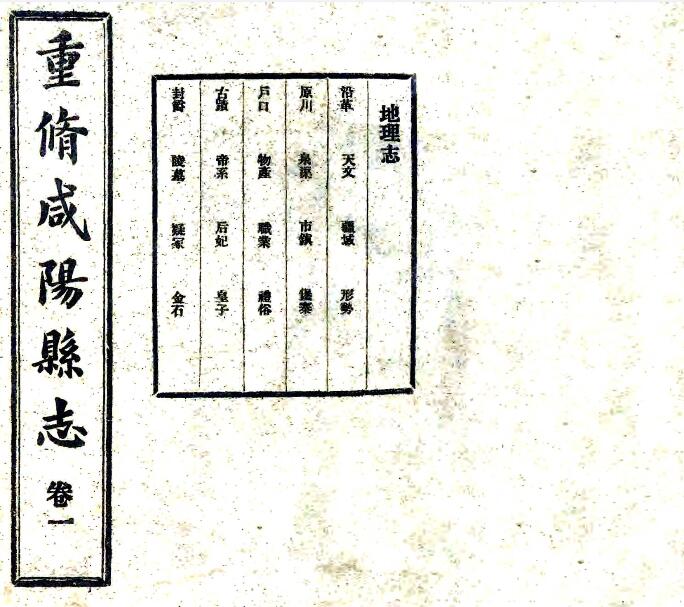 重脩咸陽縣志 卷一
地理志
沿革 天文 疆域 形勢
原川 渠渡 市鎮 堡寨
戶口 物產 職業 禮俗
古蹟 帝系 后妃 皇子
封爵 陵墓 疑冢 金石